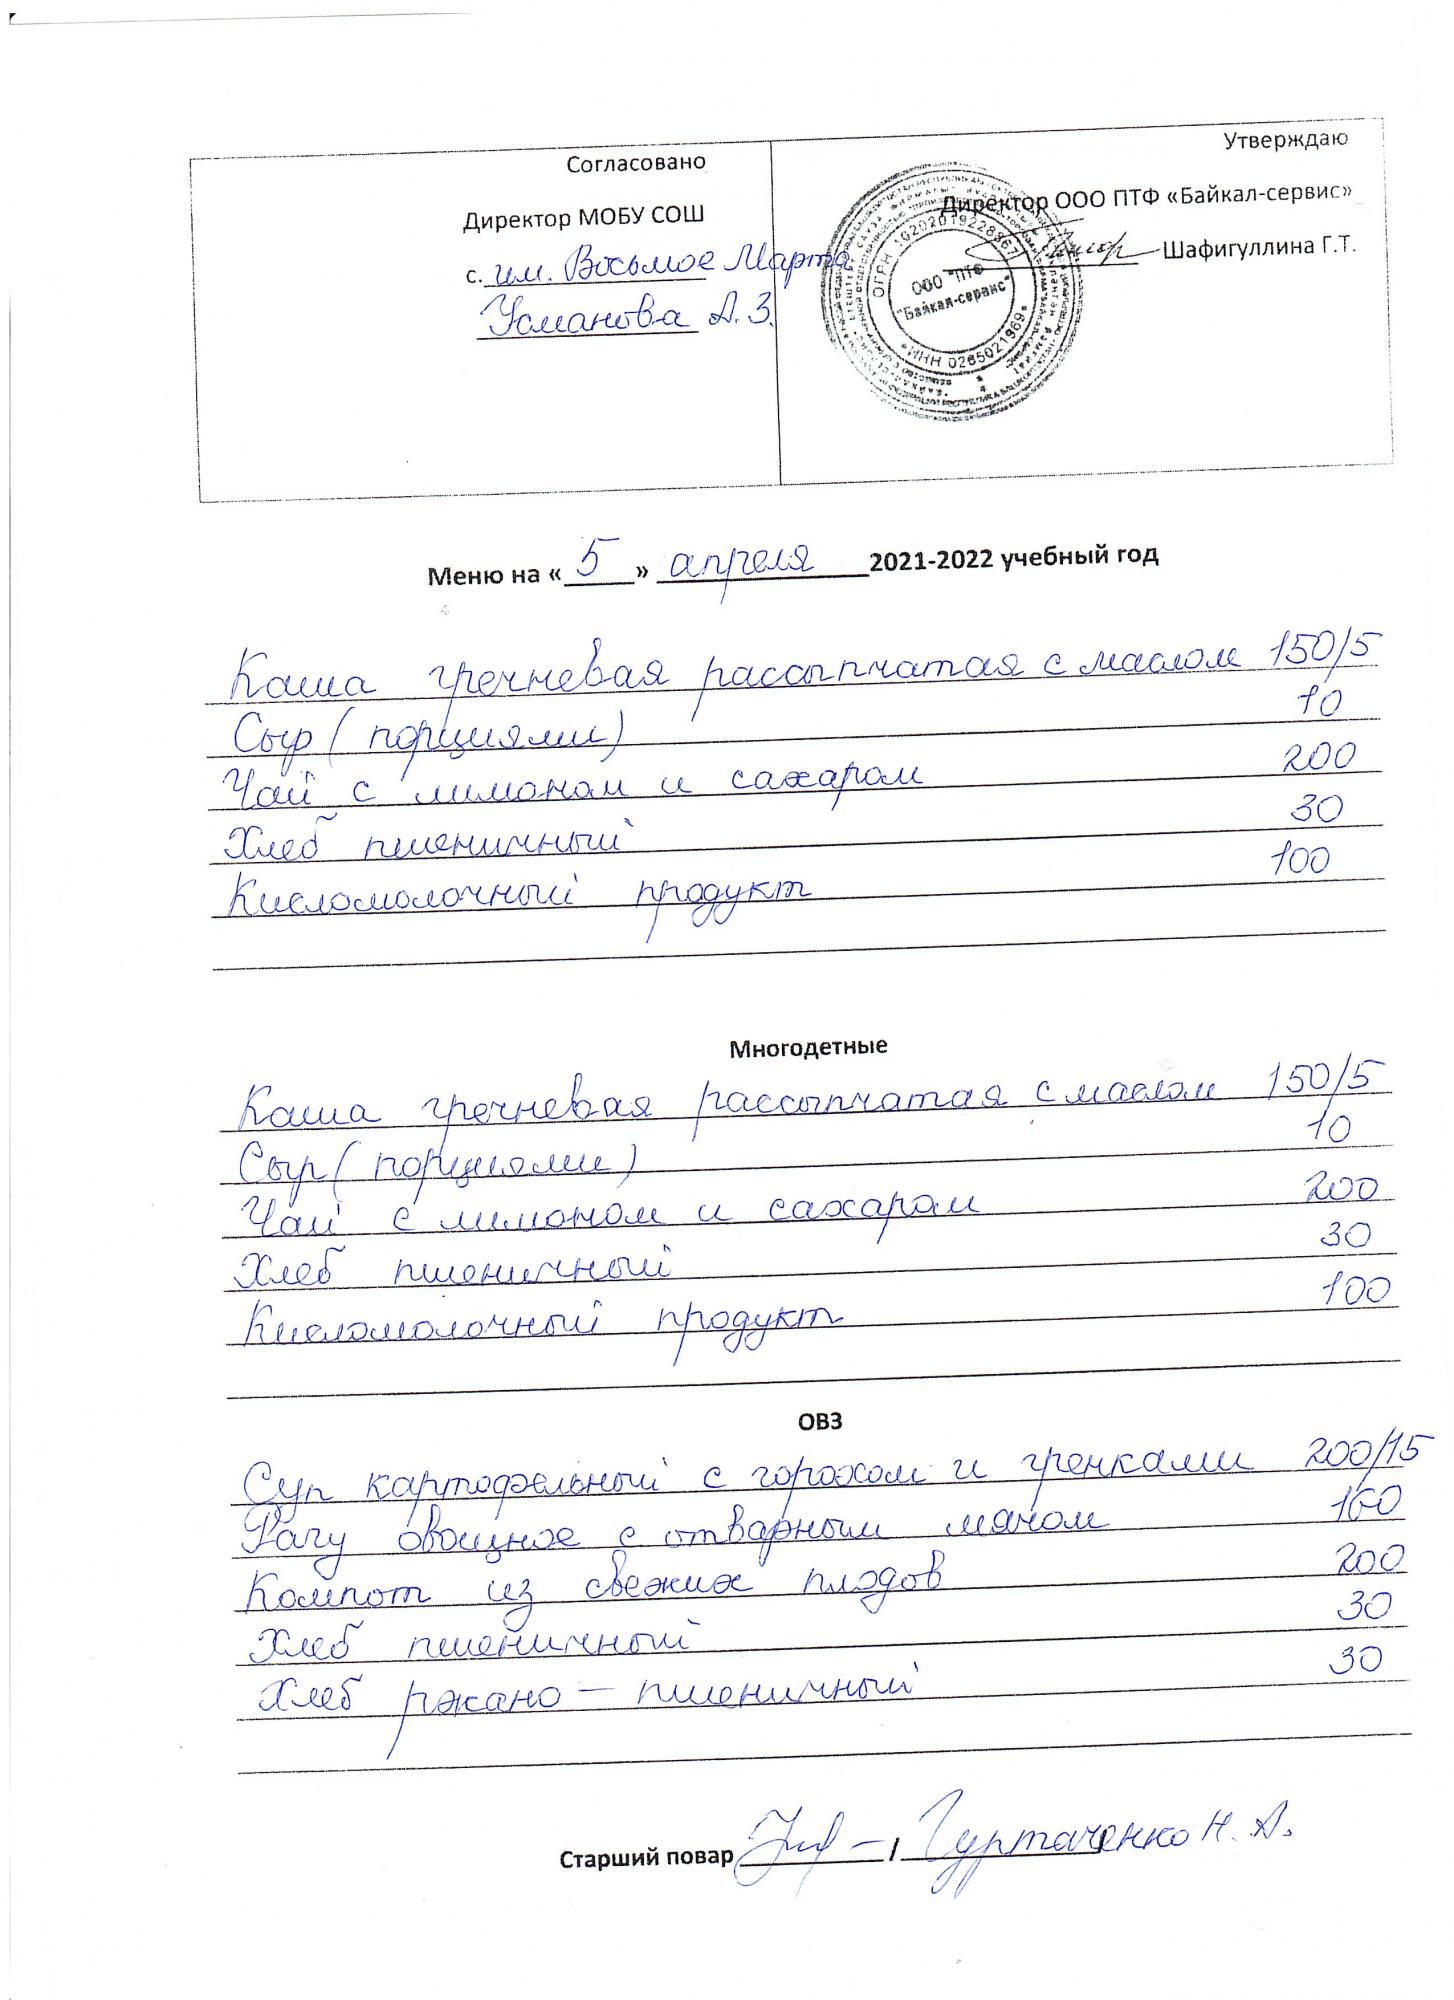 Согласовано
Директор МОБУ СОШ
с. им. Восьмое Марта
Усманова А.З.
Утверждаю
Директор ООО ПТФ «Байкал-сервис»
Шафигуллина Г.Т.
ОГРН 1020201922896
ООО "ПТФ
"Байкал-сервис"
ИНН 0265021969
Меню на « 5 » апреля 2021-2022 учебный год
Каша гречневая рассыпчатая с маслом 150/5
Сыр (порциями) 10
Чай с лимоном и сахаром 200
Хлеб пшеничный 30
Кисломолочный продукт 100
Многодетные
Каша гречневая рассыпчатая с маслом 150/5
Сыр (порциями) 10
Чай с лимоном и сахаром 200
Хлеб пшеничный 30
Кисломолочный продукт 100
ОВЗ
Суп картофельный с горохом и гренками 200/15
Рагу овощное с отварным мясом 160
Компот из свежих плодов 200
Хлеб пшеничный 30
Хлеб ржано – пшеничный 30
Старший повар / Гуртаченко Н.А.